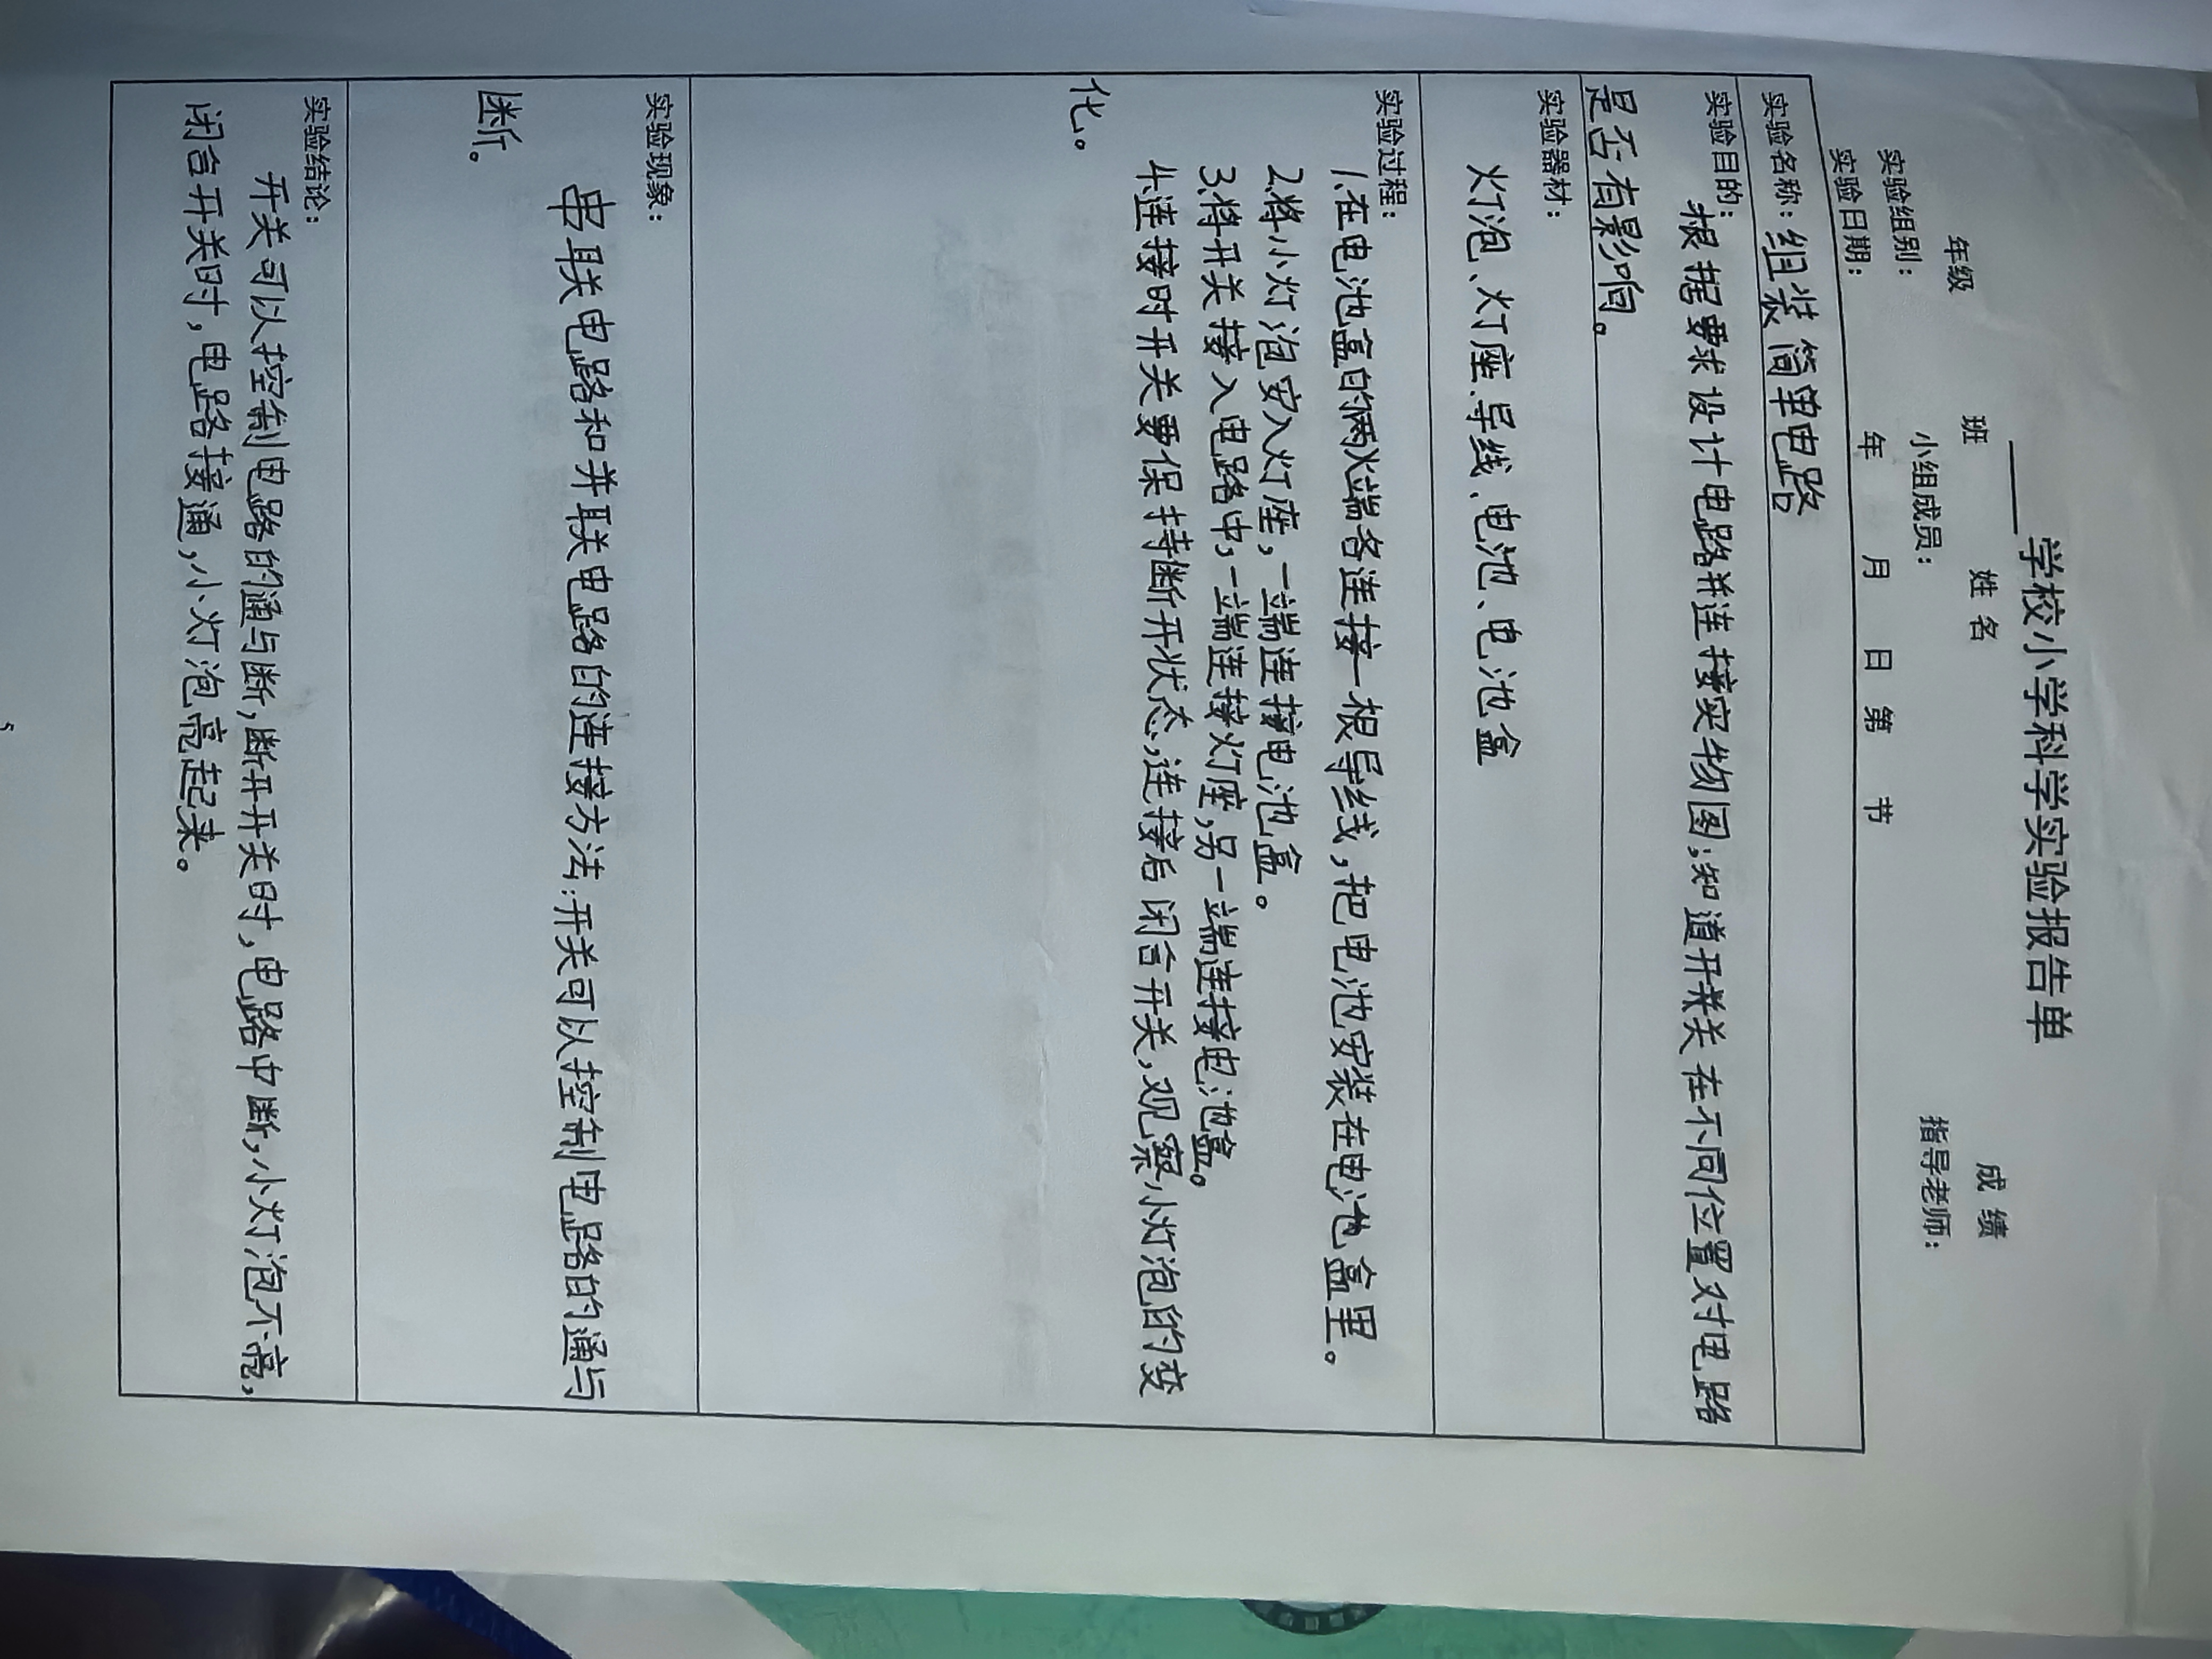 ____学校小学科学实验报告单
年级 班 姓名 成绩
实验组别： 小组成员： 指导老师：
实验日期： 年 月 日 第 节
实验名称：组装简单电路
实验目的：
根据要求设计电路并连接实物图；知道开关在不同位置对电路
是否有影响。
实验器材：
灯泡、灯座、导线、电池、电池盒
实验过程：
1.在电池盒的两端各连接一根导线，把电池安装在电池盒里。
2.将小灯泡安入灯座，一端连接电池盒。
3.将开关接入电路中，一端连接灯座，另一端连接电池盒。
4.连接时开关要保持断开状态，连接后闭合开关，观察小灯泡的变
化。
实验现象：
串联电路和并联电路的连接方法；开关可以控制电路的通与
断。
实验结论：
开关可以控制电路的通与断，断开开关时，电路中断，小灯泡不亮，
闭合开关时，电路接通，小灯泡亮起来。
5